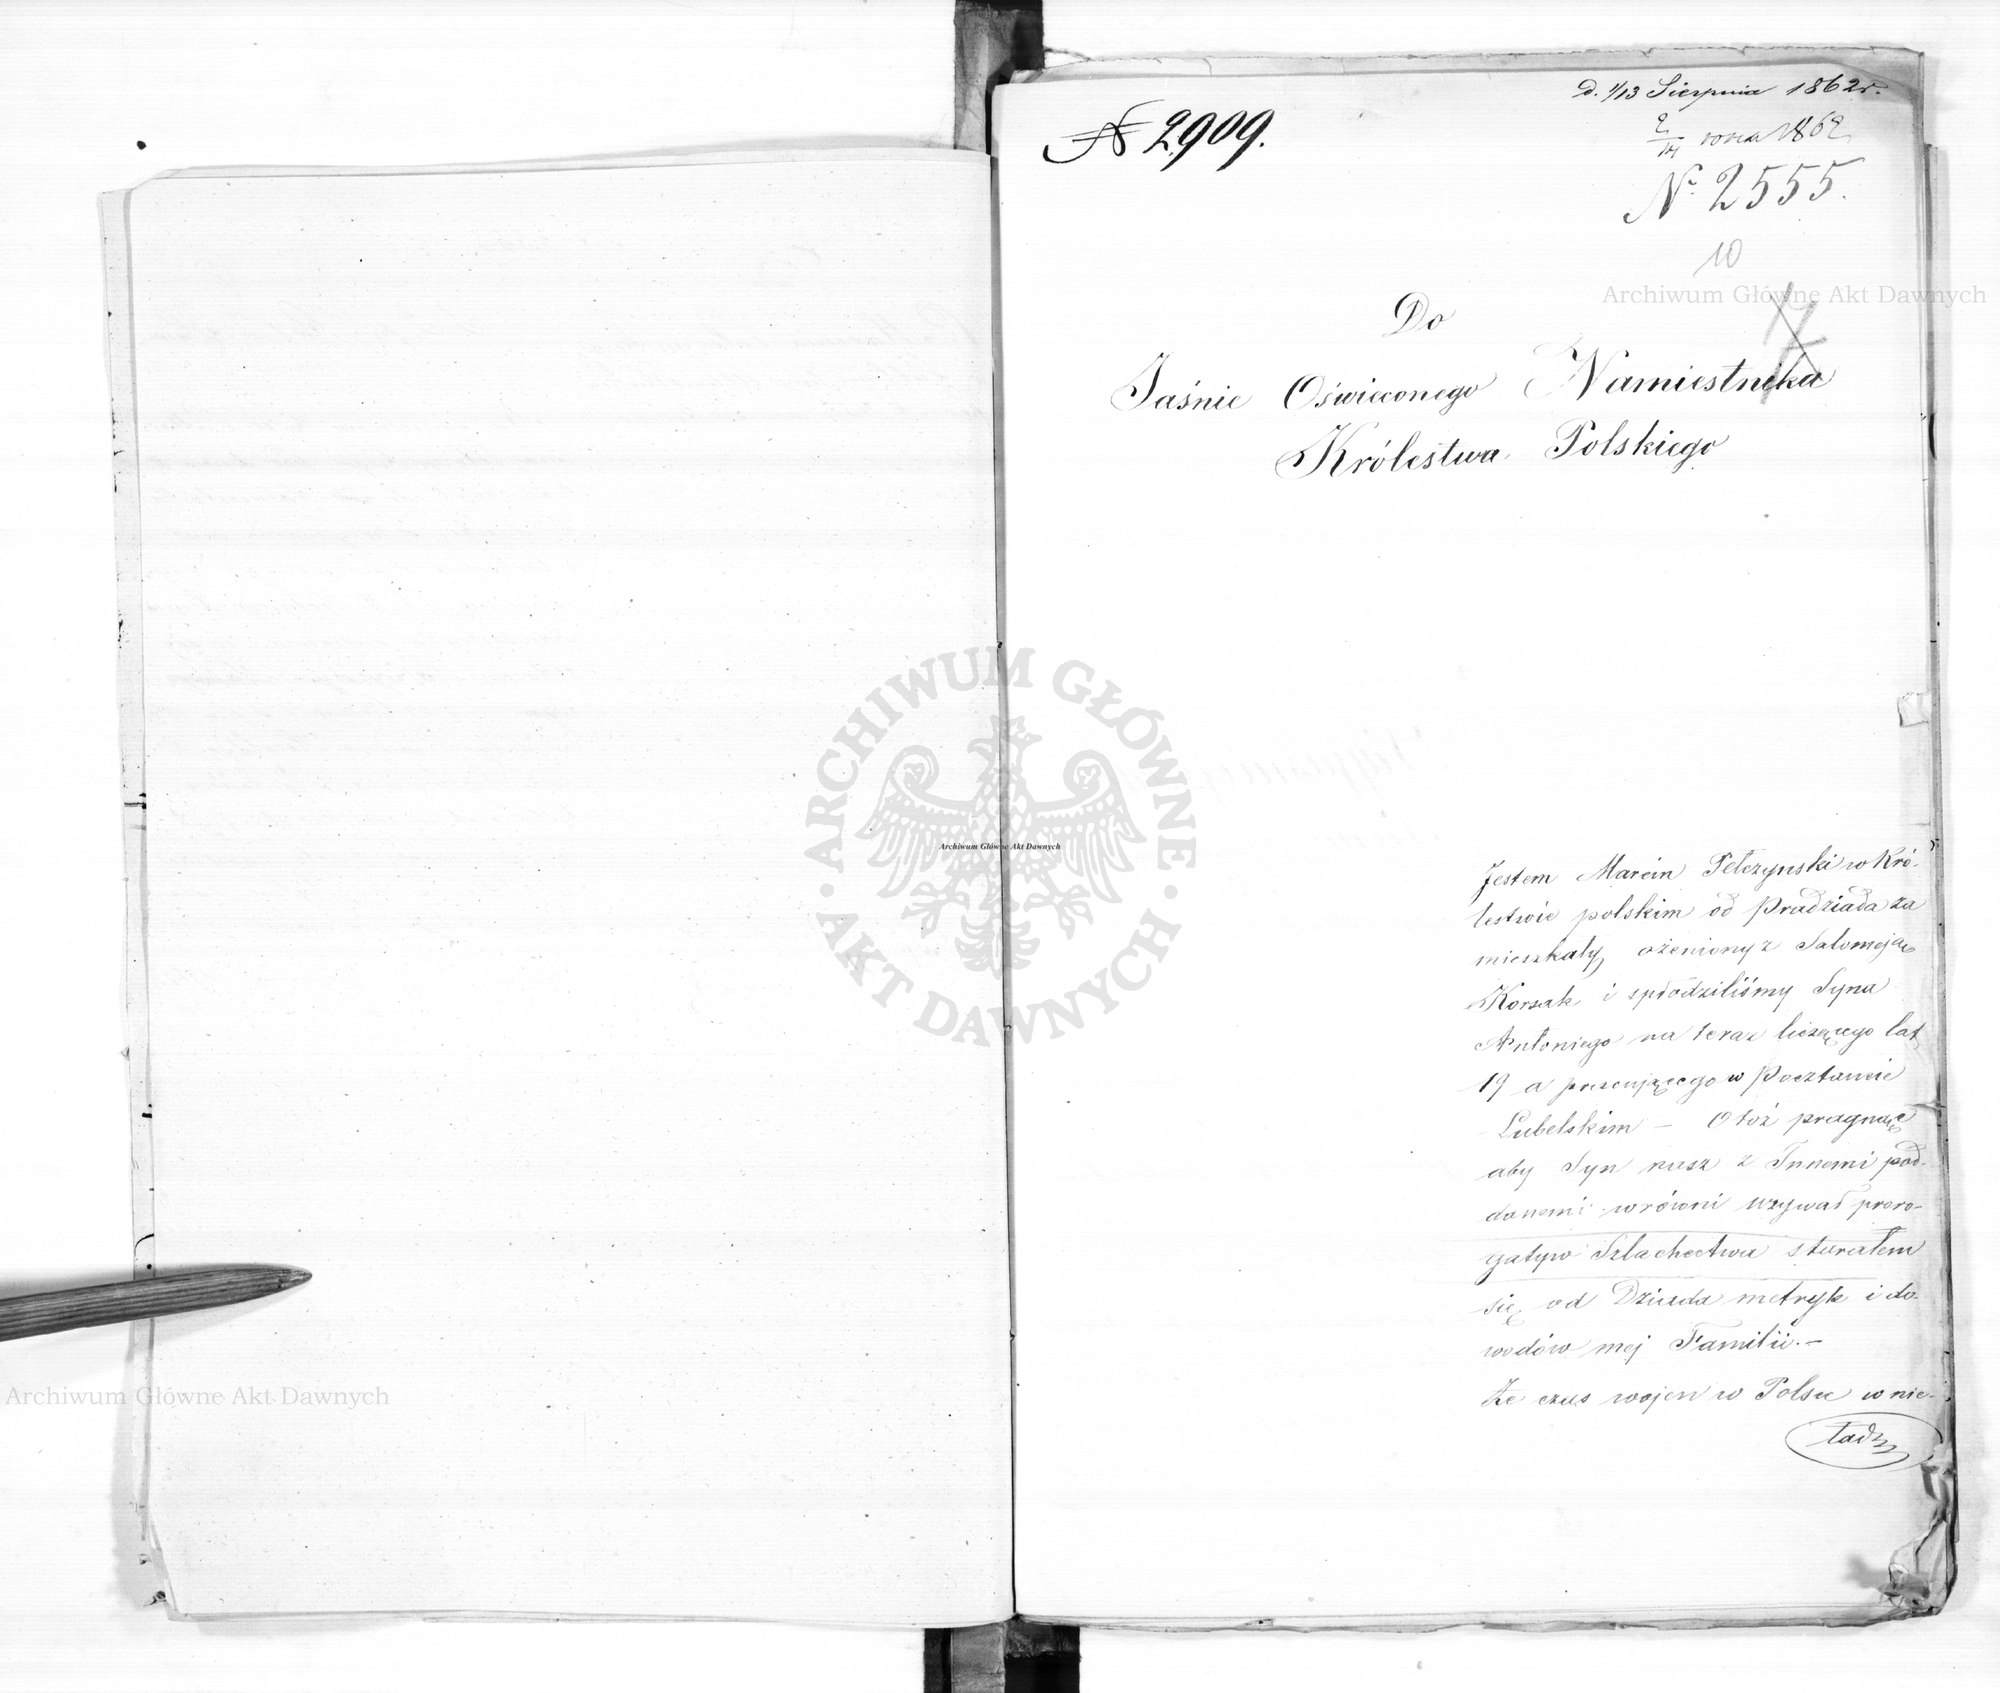 d. 1/13 Sierpnia 1862 r.
N 2909.
2/14 1862
Nr. 2555.
10
7
Do
Jaśnie Oświeconego Namiestnika
Królestwa Polskiego
Jestem Marcin Pełczynski w Kró-
lestwie polskim od Pradziada za
mieszkały ożeniony z Salomeją
Korsak i spłodziliśmy Syna
Antoniego na teraz liczącego lat
19 a pracującego w Pocztamcie
Lubelskim – Otóż pragnąc
aby Syn nasz z Innemi pod-
danemi w równi używał prero-
gatyw Szlachectwa starałem
się od Dziada metryk i do-
wodów mej Familii. –
Że czas wojen w Polsce w nie-
ładzie
ARCHIWUM GŁÓWNE AKT DAWNYCH
Archiwum Główne Akt Dawnych
Archiwum Główne Akt Dawnych
Archiwum Główne Akt Dawnych